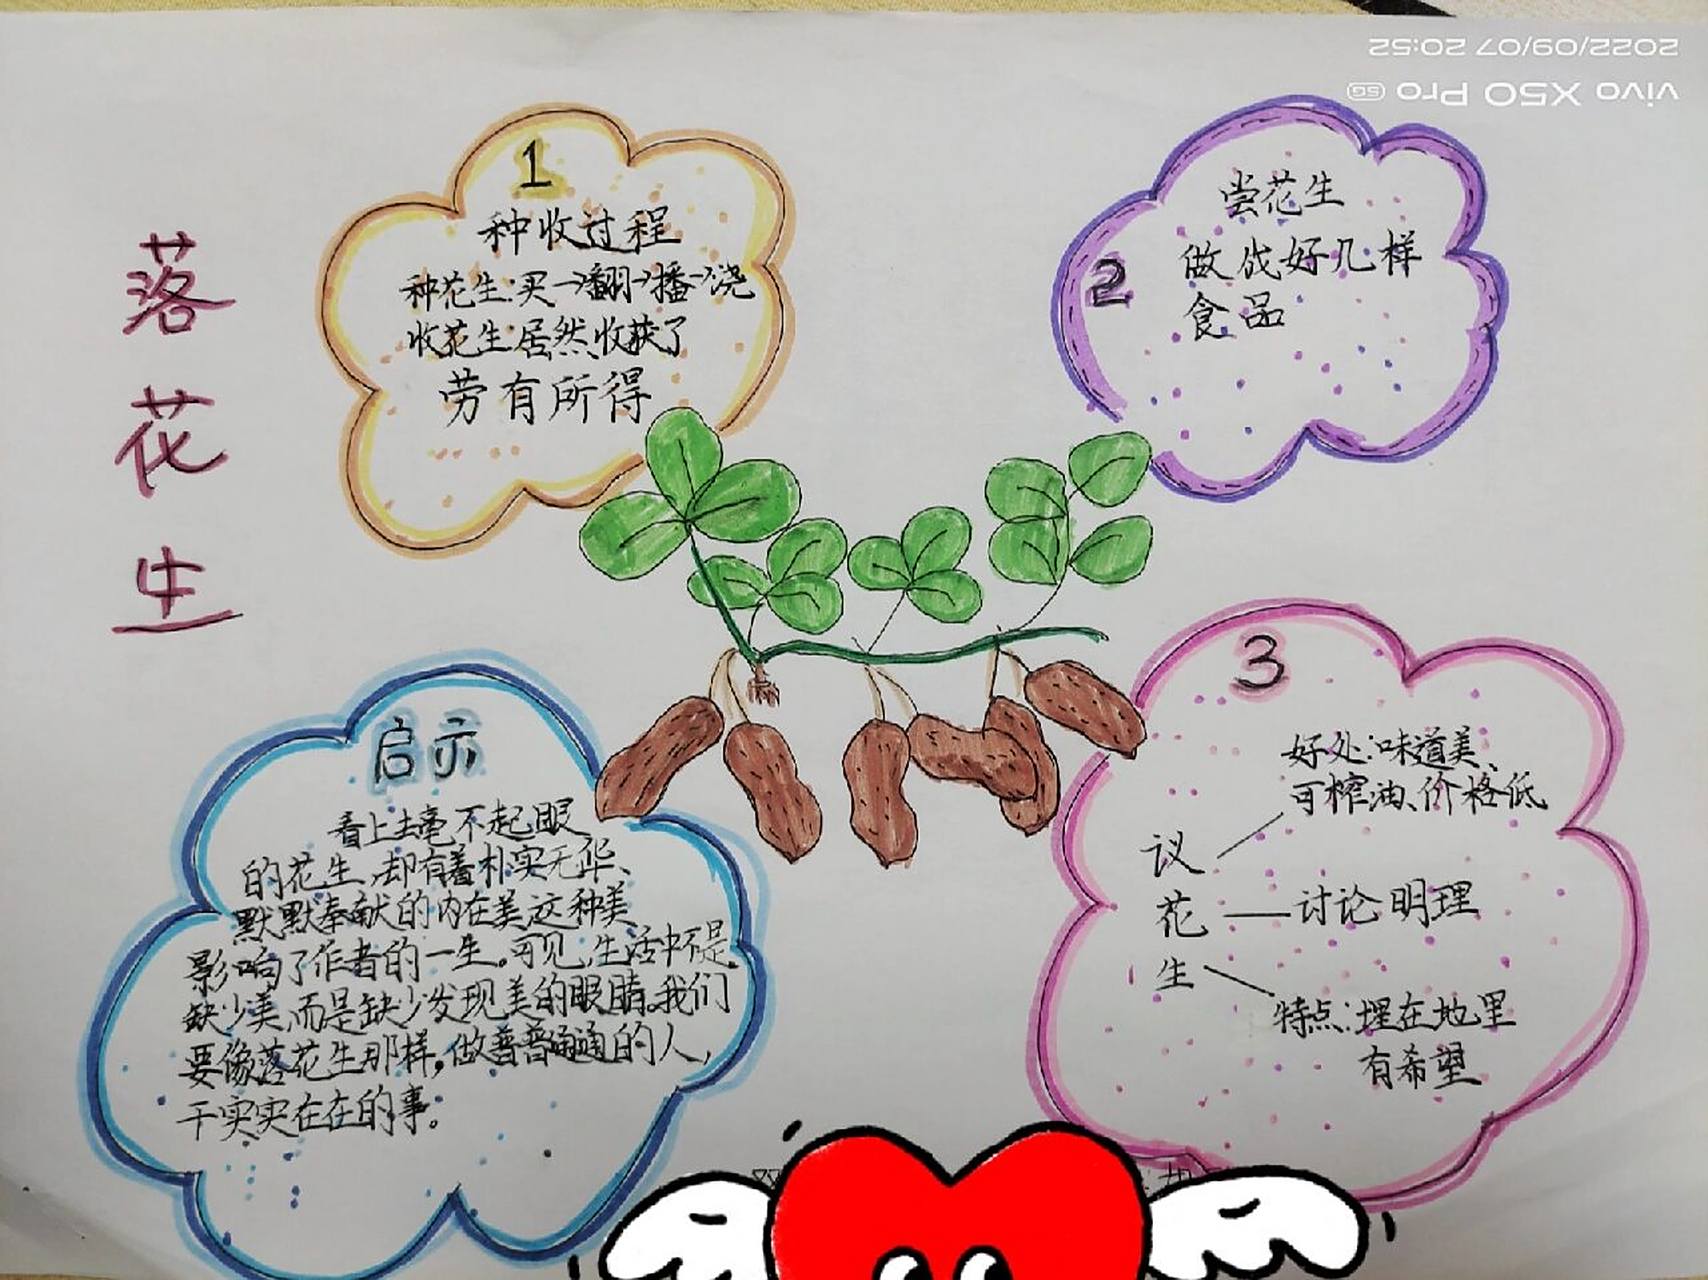 落花生
1
种收过程
种花生:买→翻→播→浇
收花生:居然收获了
劳有所得
2
尝花生
做成好几样
食品
3
议花生
好处:味道美、
可榨油、价格低
讨论明理
特点:埋在地里
有希望
启示
看上去毫不起眼
的花生,却有着朴实无华、
默默奉献的内在美这种美
影响了作者的一生。可见,生活中不是
缺少美,而是缺少发现美的眼睛。我们
要像落花生那样,做普普通通的人,
干实实在在的事。
vivo X50 Pro 5G
2022/09/07 20:52